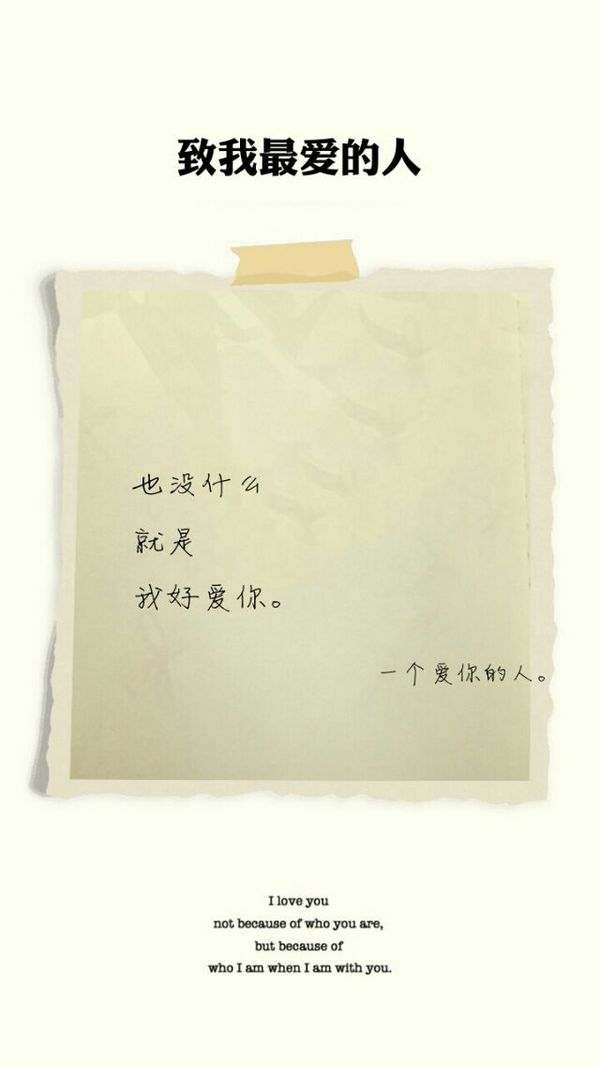 致我最爱的人
也没什么
就是
我好爱你。
一个爱你的人。
I love you
not because of who you are,
but because of
who I am when I am with you.